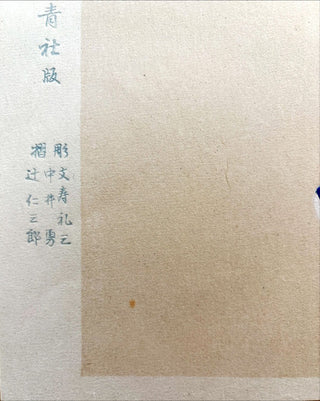 青社版
彫文寿礼三
摺中井勇
辻仁三郎